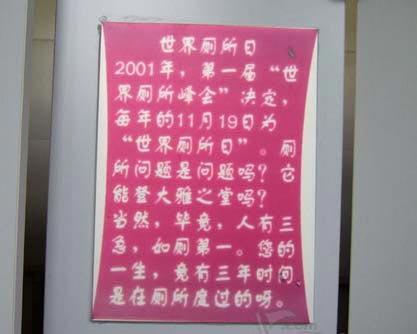 世界厕所日
2001年，第一届“世
界厕所峰会”决定，
每年的11月19日为
“世界厕所日”。厕
所问题是问题吗？它
能登大雅之堂吗？
当然，毕竟，人有三
急，如厕第一。您的
一生，竟有三年时间
是在厕所度过的呀。